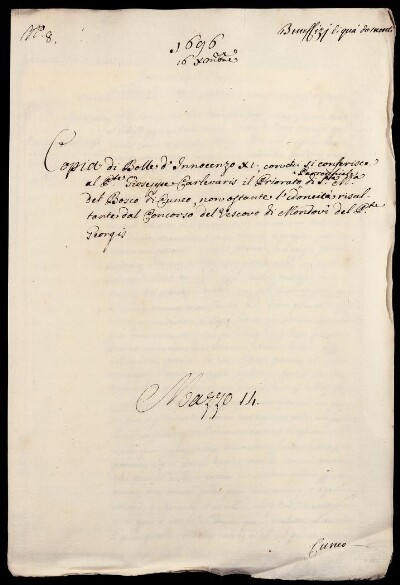 N.º 8.
Beneffizj di quà da monti
1696
16 Xmbre
Copia di Bolle d'Innocenzo XI. con cui si conferisce
al P.te Gioseppe Castenaris il Priorato Parrochiale di S.ta M.a
del Bosco di Cuneo, non ostante l'idoneità risul
tante dal Concorso del Vescovo di Mondovì del P.te
Giorgis
Mazzo 14.
Cuneo